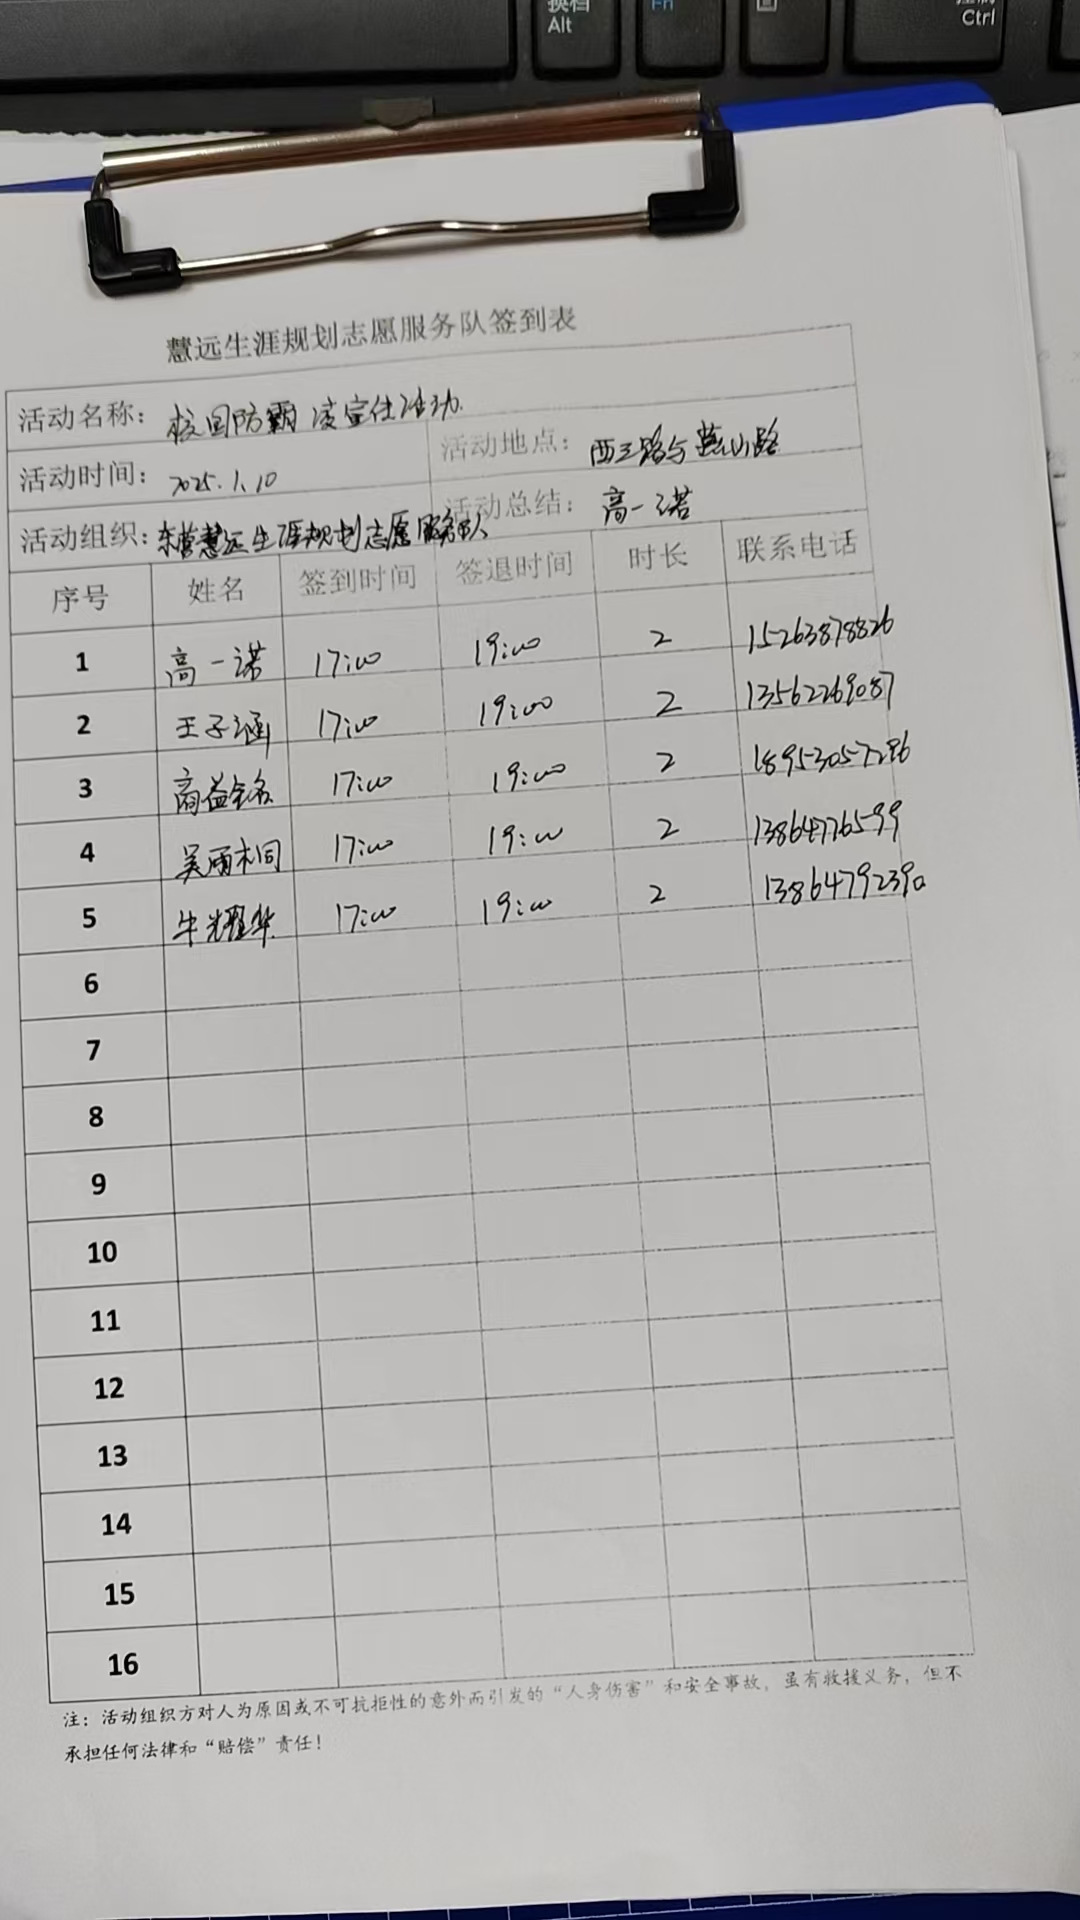 换档
Alt
Fn
Ctrl
慧远生涯规划志愿服务队签到表
活动名称： 校园防霸凌宣传活动.
活动时间： 2025.1.10 活动地点： 西三路与燕山路
活动组织：东营慧远生涯规划志愿服务队 活动总结： 高一诺
序号 姓名 签到时间 签退时间 时长 联系电话
1 高一诺 17:00 19:00 2 15263878826
2 王子涵 17:00 19:00 2 13562269087
3 商益铭 17:00 19:00 2 18953057286
4 吴雨桐 17:00 19:00 2 13864776599
5 牛耀华 17:00 19:00 2 13864792390
6
7
8
9
10
11
12
13
14
15
16
注：活动组织方对人为原因或不可抗拒性的意外而引发的“人身伤害”和安全事故，虽有救援义务，但不
承担任何法律和“赔偿”责任！